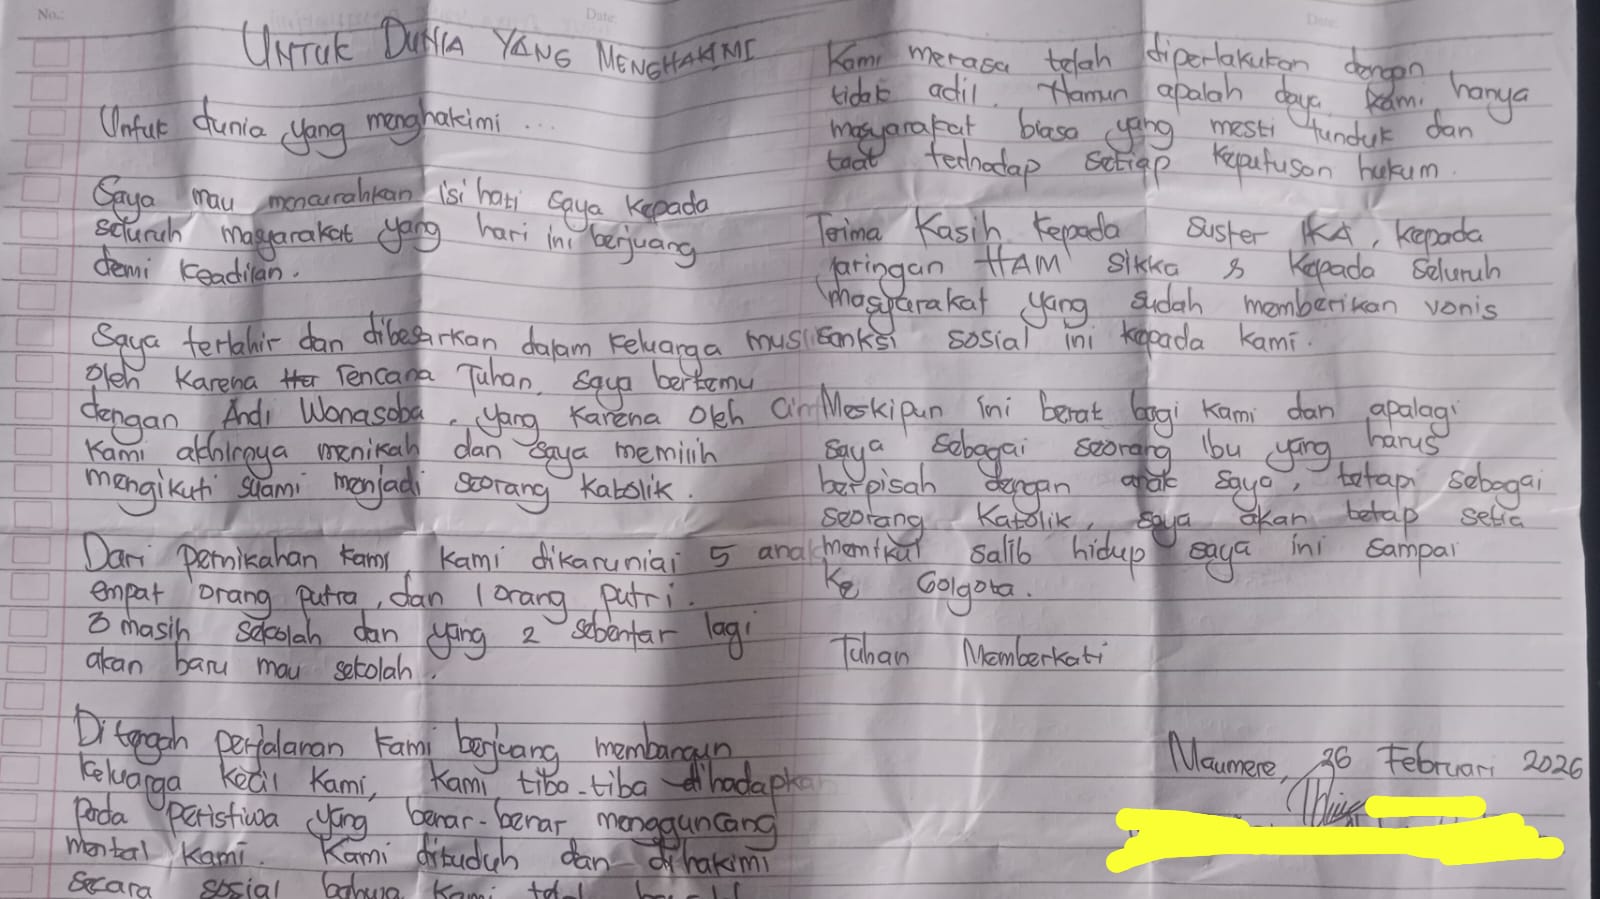 No.:
Date:
UNTUK DUNIA YANG MENGHAKIMI
Untuk dunia yang menghakimi ...
Saya mau mencurahkan isi hati saya kepada
seluruh masyarakat yang hari ini berjuang
demi keadilan.
Saya terlahir dan dibesarkan dalam keluarga mus
oleh karena rencana Tuhan, saya bertemu
dengan Andi Wonasoba, yang karena oleh cin
kami akhirnya menikah dan saya memilih
mengikuti suami menjadi seorang katolik.
Dari pernikahan kami, kami dikaruniai 5 anak
empat orang putra, dan 1 orang putri.
3 masih sekolah dan yang 2 sebentar lagi
akan baru mau sekolah.
Di tengah perjalanan kami berjuang membangun
keluarga kecil kami, kami tiba-tiba dihadapkan
pada peristiwa yang benar-benar mengguncang
mental kami. Kami dituduh dan dihakimi
secara sosial bahwa kami
Date:
Kami merasa telah diperlakukan dengan
tidak adil. Namun apalah daya, kami hanya
masyarakat biasa yang mesti tunduk dan
taat terhadap setiap keputusan hukum.
Terima Kasih kepada Suster IKA, kepada
jaringan HAM Sikka & kepada seluruh
masyarakat yang sudah memberikan vonis
sanksi sosial ini kepada kami.
Meskipun ini berat bagi kami dan apalagi
saya sebagai seorang ibu yang harus
berpisah dengan anak saya, tetapi sebagai
seorang Katolik, saya akan tetap setia
memikul salib hidup saya ini sampai
ke Golgota.
Tuhan Memberkati
Maumere, 26 Februari 2026